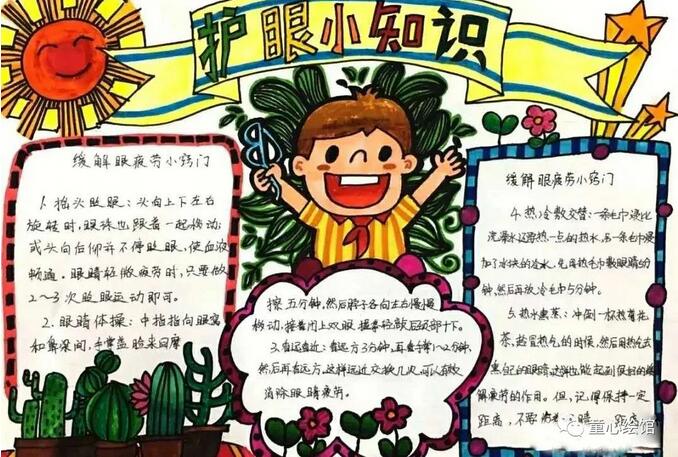 护眼小知识
缓解眼疲劳小窍门
1. 抬头眨眼：头向上下左右
旋转时，眼珠也跟着一起移动；
或头向后仰并不停眨眼，使血液
畅通。眼睛轻微疲劳时，只要做
2～3次眨眼运动即可。
2. 眼睛体操：中指指向眼窝
和鼻梁间，手掌盖脸来回摩
擦五分钟，然后脖子各向左右慢慢
移动，接着闭上双眼，握拳轻敲后颈部十下。
3. 看远看近：看远方3分钟，再看手掌1～2分钟，
然后再看远方，这样远近交换几次，可以有效
消除眼睛疲劳。
缓解眼疲劳小窍门
4. 热冷敷交替：一条毛巾浸比
洗澡水还要热一点的热水，另一条毛巾浸
加了冰块的冷水，先用热毛巾敷眼睛5分
钟，然后再放冷毛巾5分钟。
5. 热水熏蒸：冲倒一杯热菊花
茶，趁冒热气的时候，然后用热气去
熏自己的眼睛，这样也能起到很好的缓
解疲劳的作用。但，记得保持一定
距离，不要 距离
童心绘馆